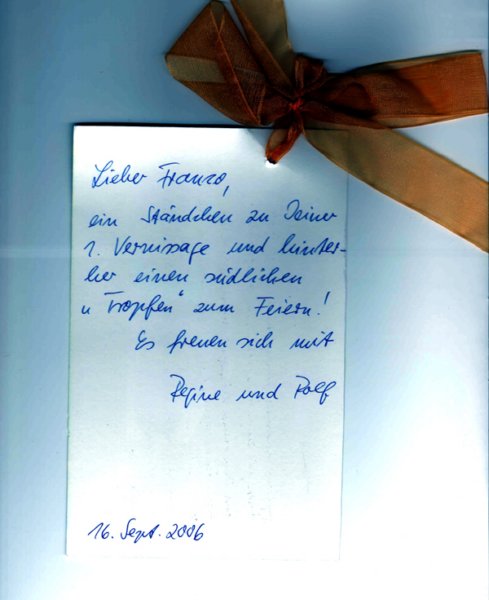 Lieber Franzo,
ein Ständchen zu Deiner
1. Vernissage und hinter-
her einen südlichen
„Tropfen“ zum Feiern!
Es freuen sich mit
Regine und Rolf
16. Sept. 2006